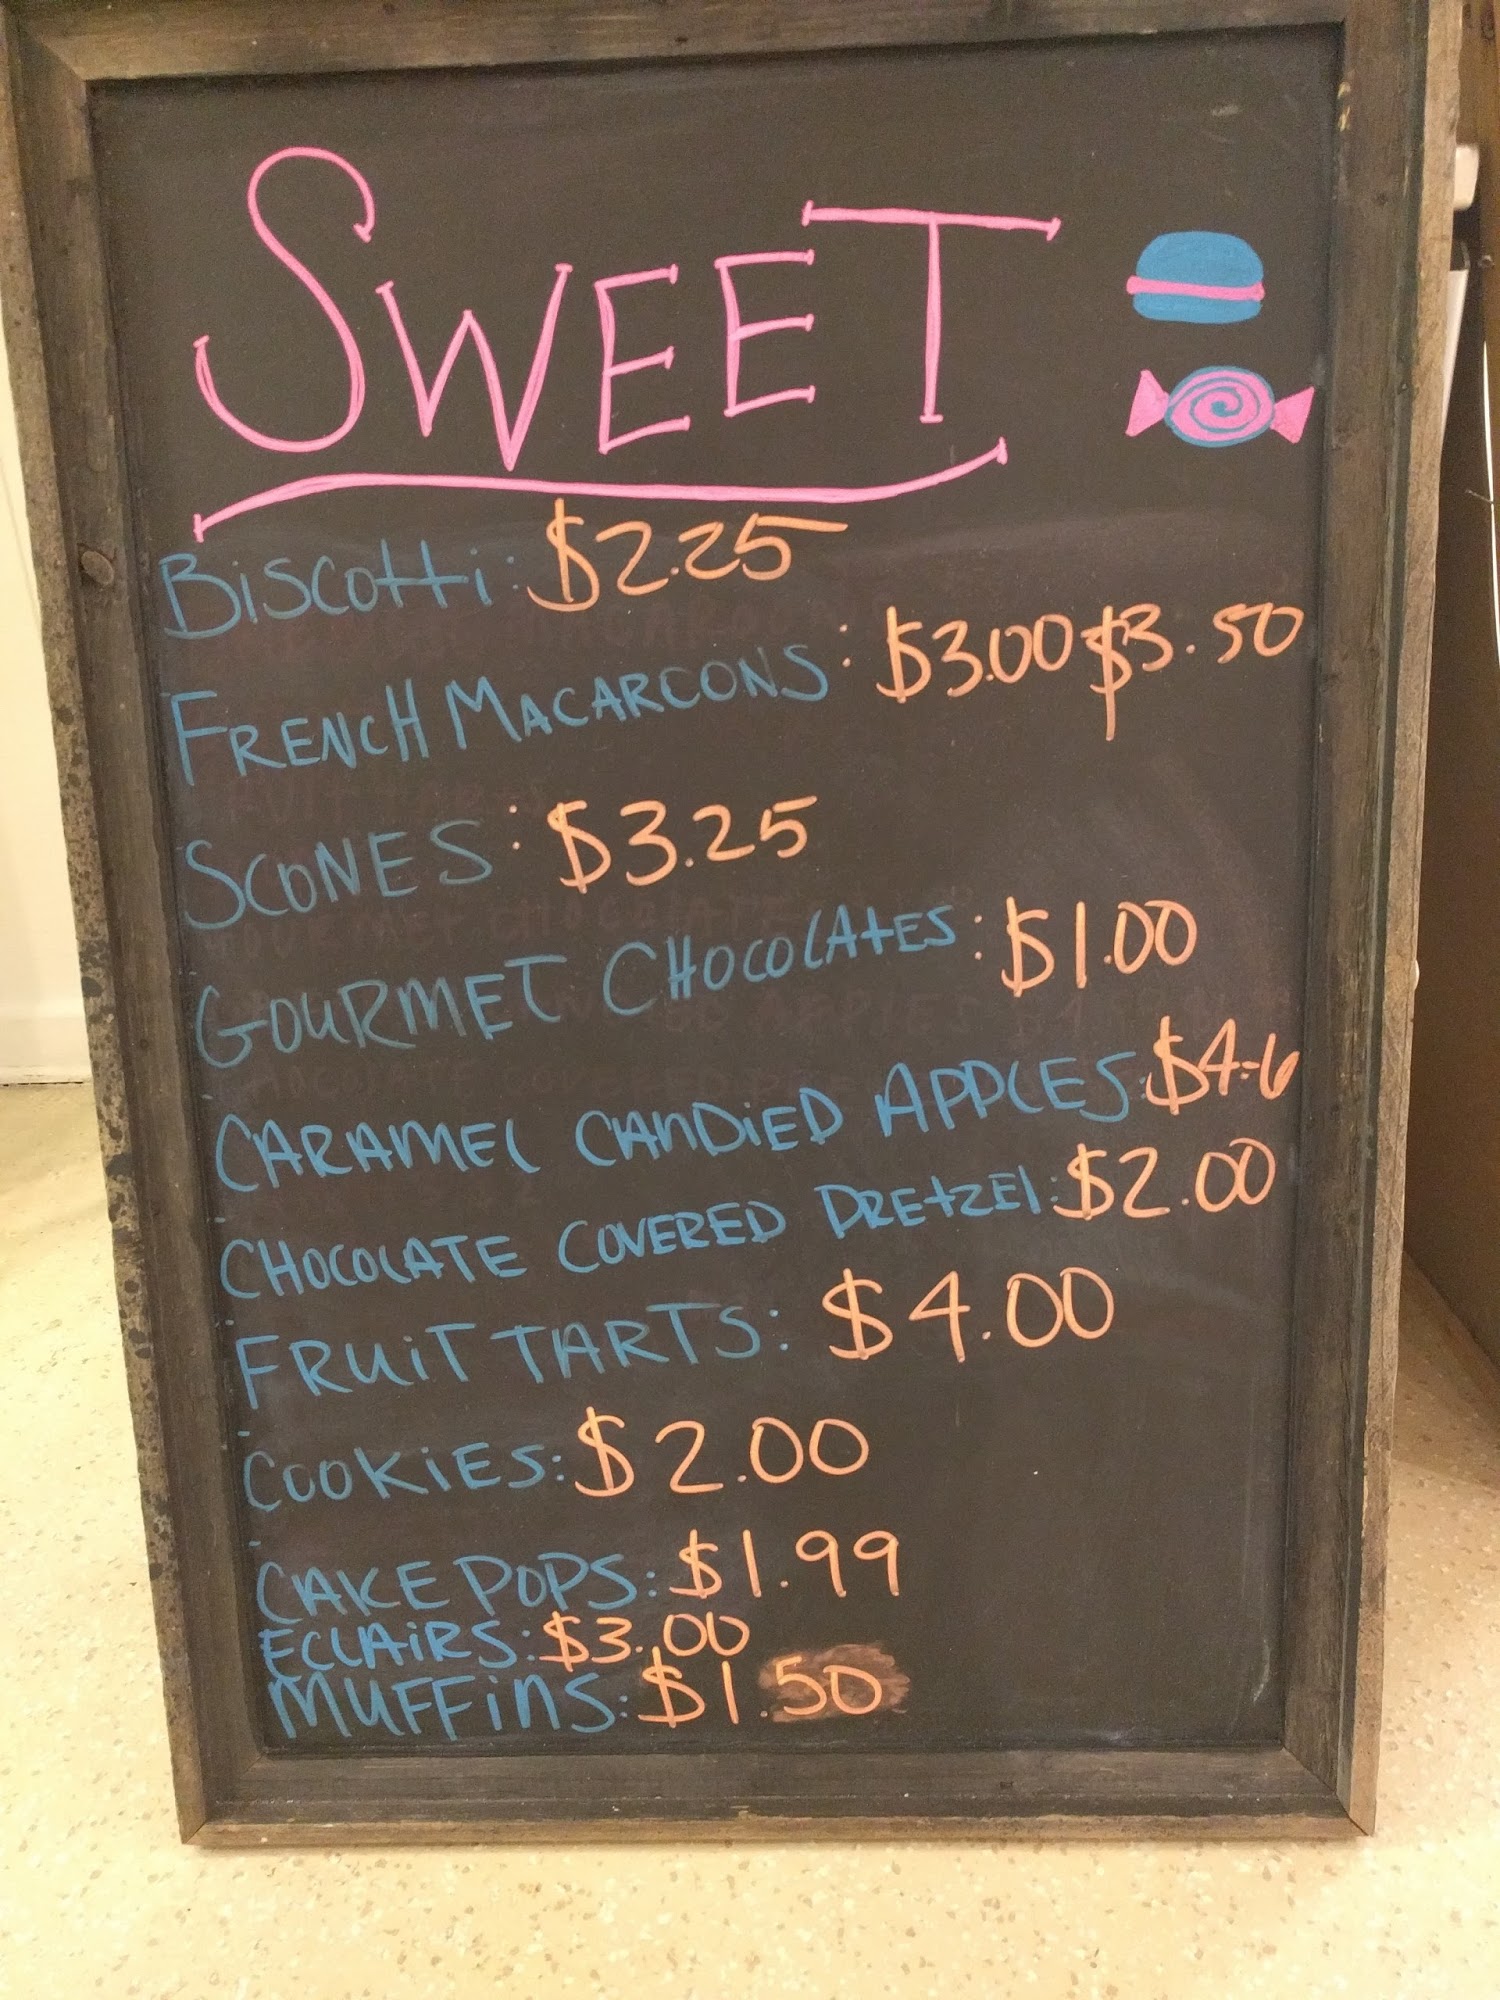 SWEET
BiSCOtti: $2.25
FRENCH MACARCONS: $3.00 $3.50
SCONES: $3.25
GOURMET CHOCOLAtES: $1.00
CARAMEL CANDiED APPLES: $4-6
CHOCOLATE COVERED PREtZEl: $2.00
FRUiT TARTS: $4.00
COOKiES: $2.00
CAKE POPS: $1.99
ECLAiRS: $3.00
MUFFiNS: $1.50